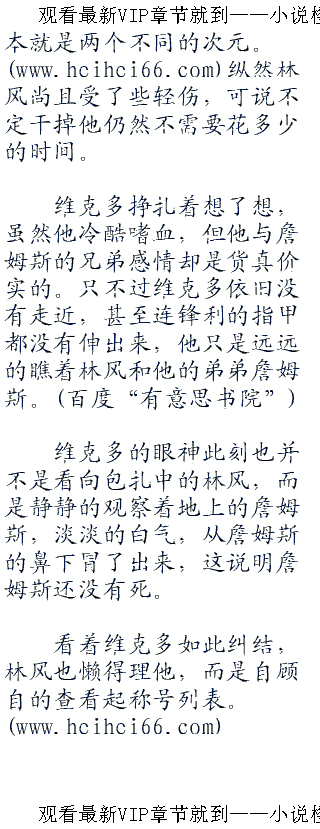 观看最新VIP章节就到——小说
本就是两个不同的次元。
(www.hcihci66.com)纵然林
风尚且受了些轻伤，可说不
定干掉他仍然不需要花多少
的时间。
维克多挣扎着想了想，
虽然他冷酷嗜血，但他与詹
姆斯的兄弟感情却是货真价
实的。只不过维克多依旧没
有走近，甚至连锋利的指甲
都没有伸出来，他只是远远
的瞧着林风和他的弟弟詹姆
斯。(百度“有意思书院”)
维克多的眼神此刻也并
不是看向包扎中的林风，而
是静静的观察着地上的詹姆
斯，淡淡的白气，从詹姆斯
的鼻下冒了出来，这说明詹
姆斯还没有死。
看着维克多如此纠结，
林风也懒得理他，而是自顾
自的查看起称号列表。
(www.hcihci66.com)
观看最新VIP章节就到——小说